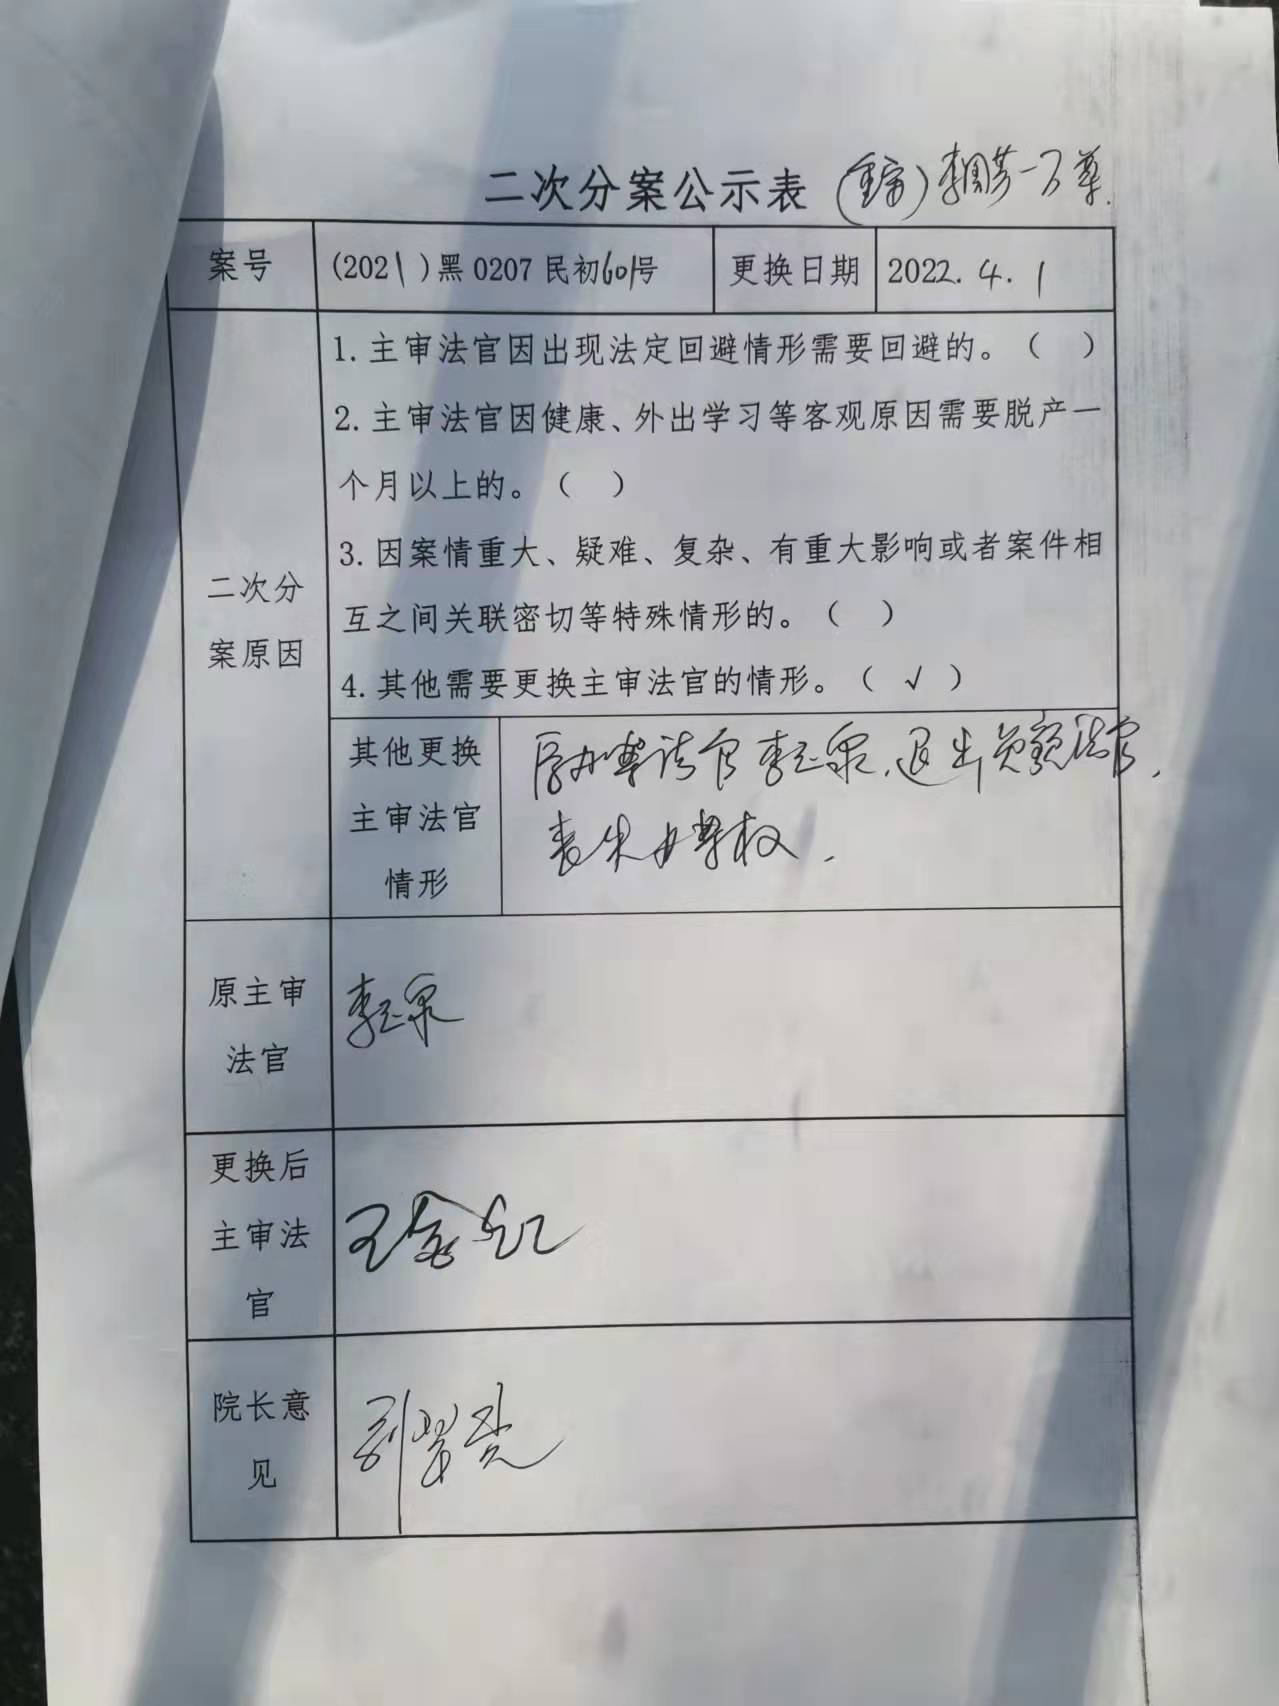 二次分案公示表 (重审)李国芳一万革.
案号
(2021)黑0207民初601号
更换日期
2022.4.1
二次分
案原因
1.主审法官因出现法定回避情形需要回避的。（ ）
2.主审法官因健康、外出学习等客观原因需要脱产一
个月以上的。（ ）
3.因案情重大、疑难、复杂、有重大影响或者案件相
互之间关联密切等特殊情形的。（ ）
4.其他需要更换主审法官的情形。（ √ ）
其他更换
主审法官
情形
原办案法官李玉泉,退出员额法官,
丧失办案权.
原主审
法官
李玉泉
更换后
主审法
官
王
院长意
见
刘